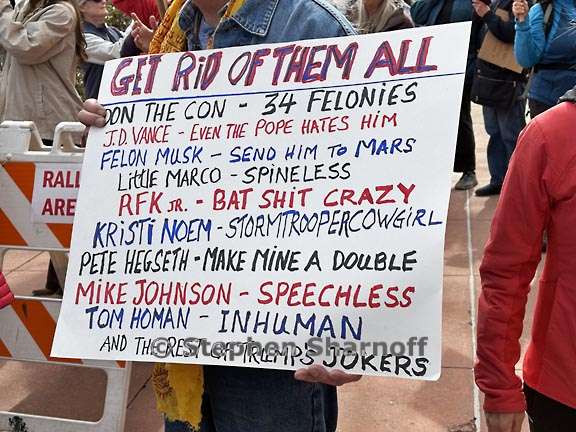 GET RID OF THEM ALL
DON THE CON - 34 FELONIES
J.D. VANCE - EVEN THE POPE HATES HIM
FELON MUSK - SEND HIM TO MARS
LITTLE MARCO - SPINELESS
RFK JR. - BAT SHIT CRAZY
KRISTI NOEM - STORMTROOPERCOWGIRL
PETE HEGSETH - MAKE MINE A DOUBLE
MIKE JOHNSON - SPEECHLESS
TOM HOMAN - INHUMAN
AND THE REST OF TRUMPS JOKERS
© Stephen Sharnoff
RALL
ARE